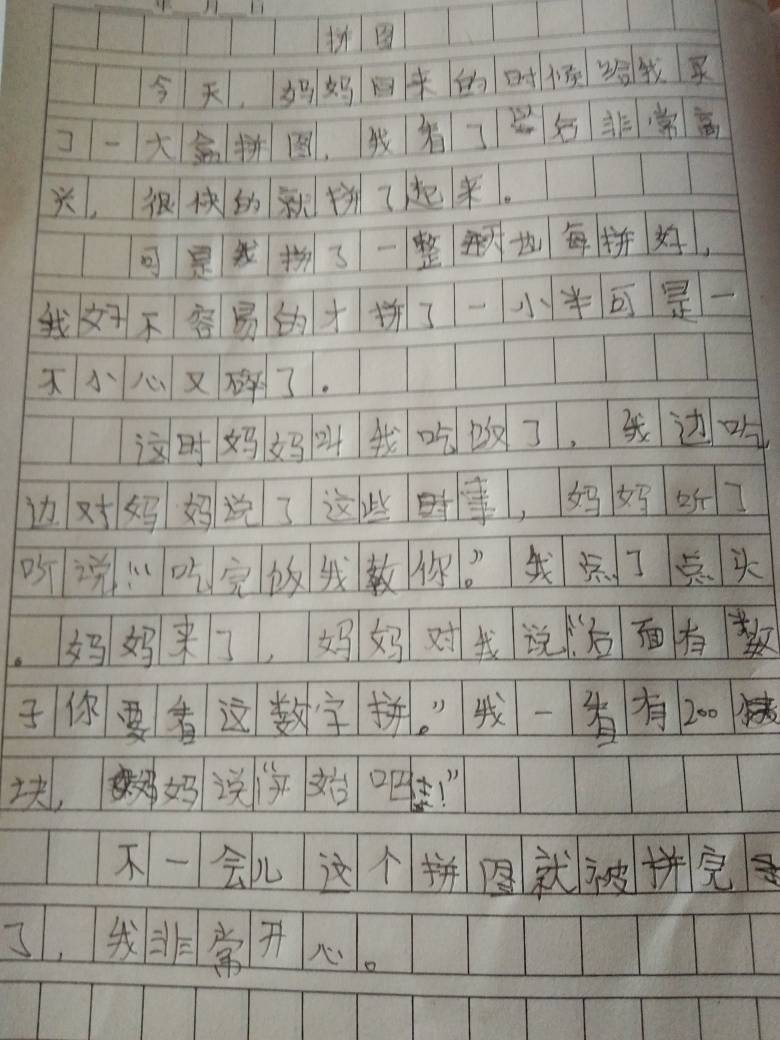 年 月 日
拼图
今天，妈妈回来的时候给我买
了一大盒拼图，我看了以后非常高
兴，很快的就拼了起来。
可是我拼了一整天也每拼好，
我好不容易的才拼了一小半可是一
不小心又碎了。
这时妈妈叫我吃饭了，我边吃
边对妈妈说了这些事，妈妈听了
听说："吃完饭我教你。"我点了点头
。妈妈来了，妈妈对我说"后面有数
子你要看这数字拼。"我一看有200
块，妈妈说"开始吧！"
不一会儿这个拼图就被拼完
了，我非常开心。